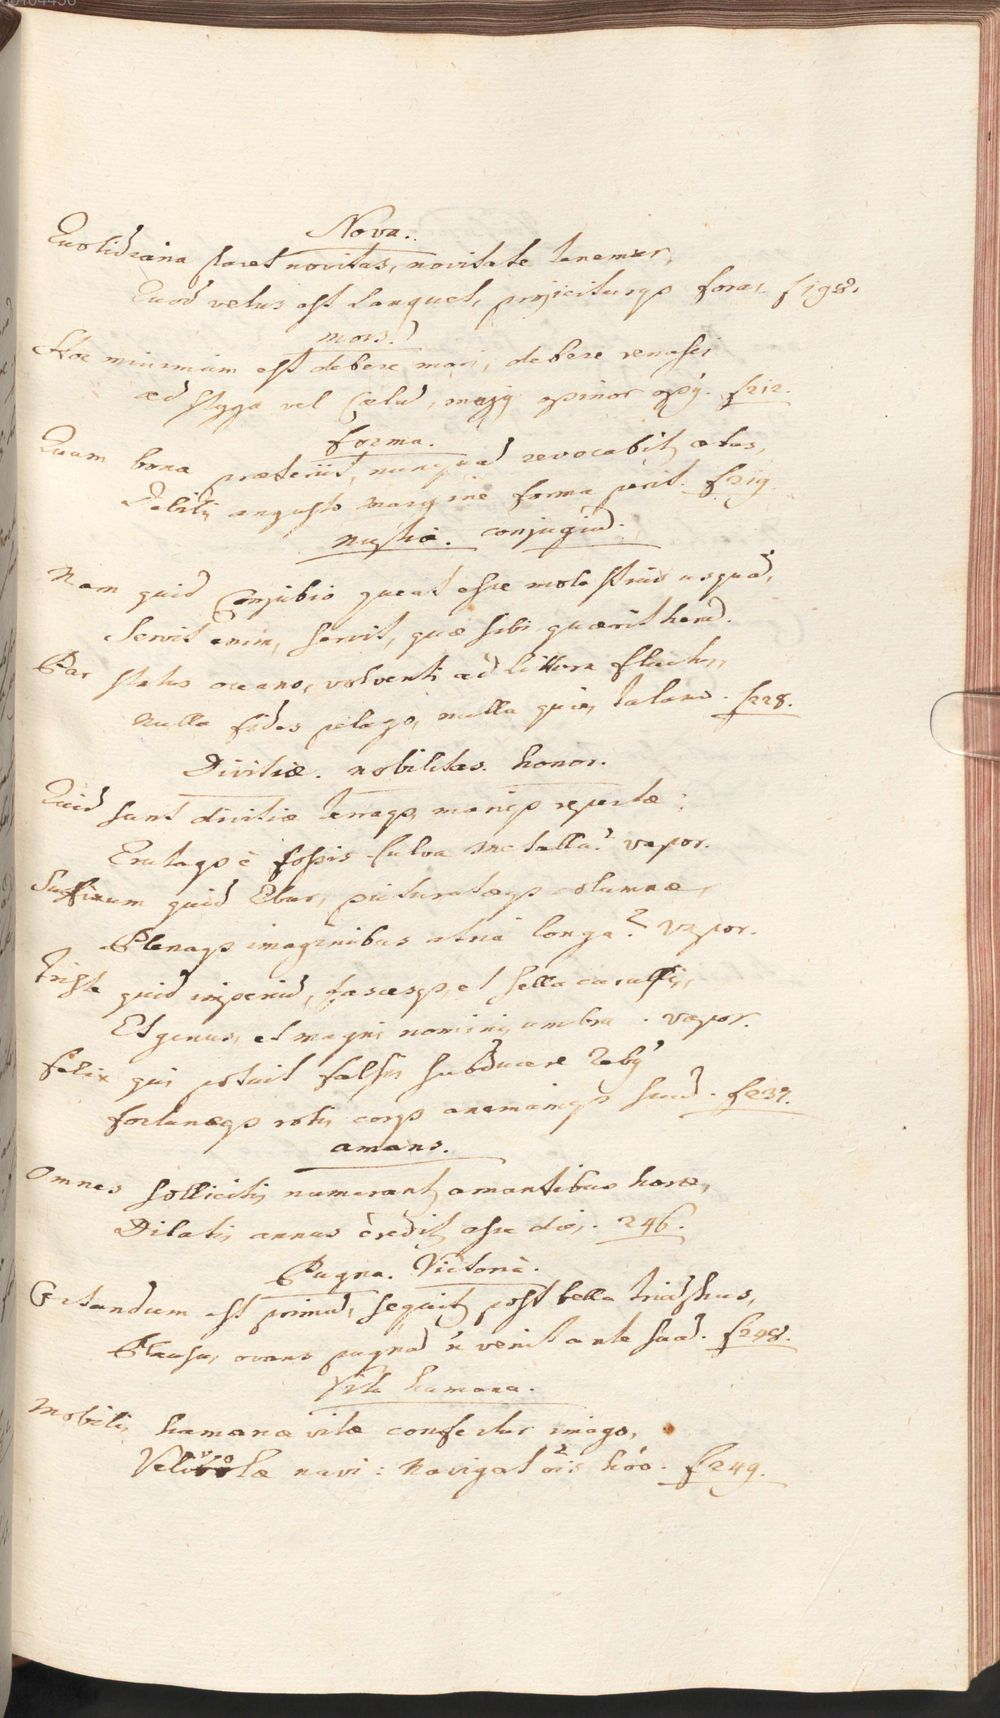 Nova.
Quotidiana placet novitas, novitate tenemur,
Quod vetus est languet, projiciturqs foras. f 198.
mors.
Hoc miserum est debere mori, debere renasci
ad styga vel Cælū, majus opinor opus. f 212.
forma.
Quam bona præteriit, nunquā revocabit ætas,
Debilis angusto margine forma perit. f 219.
nuptiæ. conjugiū.
Nam quid Conjubio queat esse molestius usquā,
Servit enim, servit, quæ sibi quærit herū.
Par status oceano, volventi ad littora fluctus,
Nulla fides pelago, nulla quies thalamo. f 228.
Divitiæ. nobilitas. honor.
Quid sunt divitiæ terraqs mariqs repertæ:
Erutaqs è fossis fulva metalla? vapor.
Suffixum quid Ebur, picturatæqs columnæ,
Plenaqs imaginibus atria longa? Vapor.
Triste quid imperiū, fascesqs, et sella curulis,
Et genus, et magni nominis umbra. vapor.
felix qui potuit falsis subducere rebus
fortunæqs rotis corqs animamqs suā. f 237.
amans.
Omnes sollicitis numerant amantibus horæ,
Dilatis annus credit esse dies. 246.
Pugna. Victoria.
Certandum est primū, sequit post bella triūphus,
Plausus ovans pugnā ñ venit ante suā. f 248.
Vita humana.
Mobilis humanæ vitæ confertur imago,
Velivolæ navi: Navigat ois hóo. f 249.